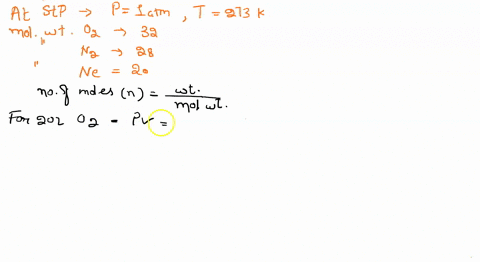 At StP → P = 1 atm , T = 273 k
mol. wt. O2 → 32
" N2 → 28
" Ne = 20
no. of moles (n) = wt. / mol wt.
For 20L O2 - PV =